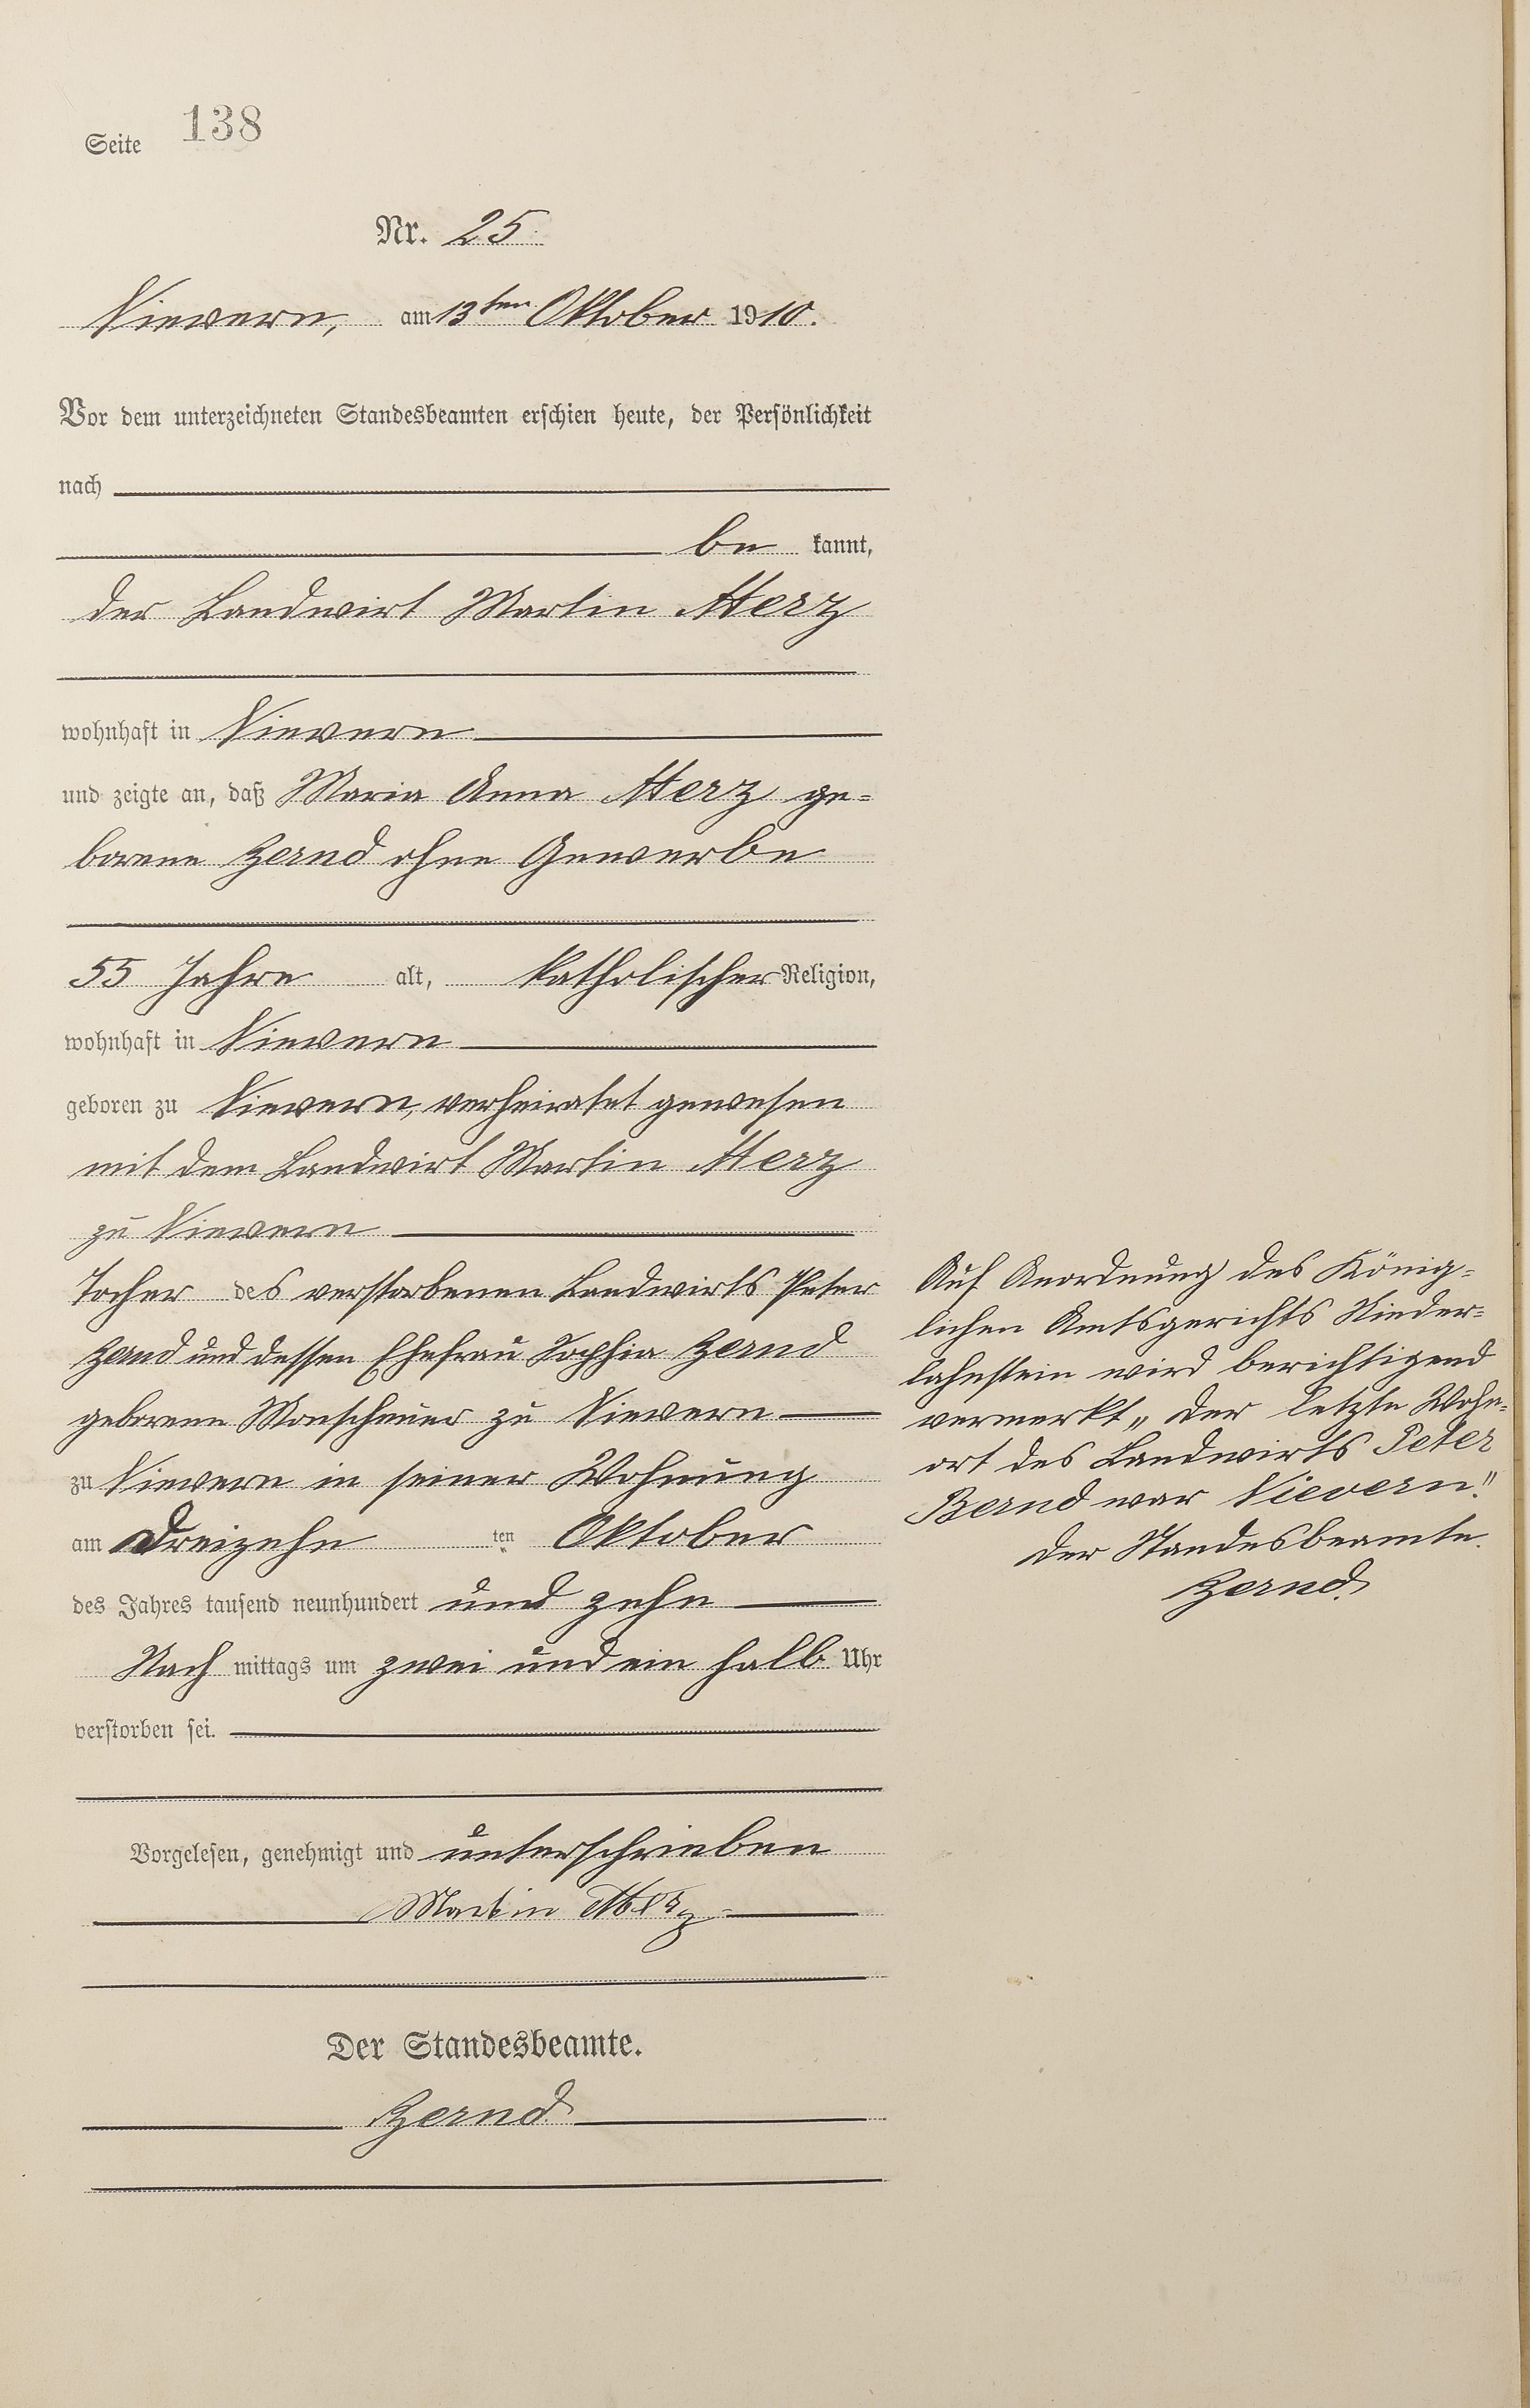 Seite 138
Nr. 25.
Nievern, am 13ten Oktober 1910.
Vor dem unterzeichneten Standesbeamten erschien heute, der Persönlichkeit
nach
be kannt,
der Landwirt Martin Herz
wohnhaft in Nievern
und zeigte an, daß Maria Anna Herz ge=
borene Bernd ohne Gewerbe
55 Jahre alt, katholischer Religion,
wohnhaft in Nievern
geboren zu Nievern, verheiratet gewesen
mit dem Landwirt Martin Herz
zu Nievern
Tocher des verstorbenen Landwirts Peter
Bernd und dessen Ehefrau Sophia Bernd
geborene Monschauer zu Nievern
zu Nievern in seiner Wohnung
am Dreizehn ten Oktober
des Jahres tausend neunhundert und zehn
Nach mittags um zwei und ein halb Uhr
verstorben sei.
Vorgelesen, genehmigt und unterschrieben
Martin Herz
Der Standesbeamte.
Bernd
Auf Anordnung des König=
lichen Amtsgerichts Nieder=
lahnstein wird berichtigend
vermerkt „der letzte Wohn=
ort des Landwirts Peter
Bernd war Nievern."
Der Standesbeamte.
Bernd.